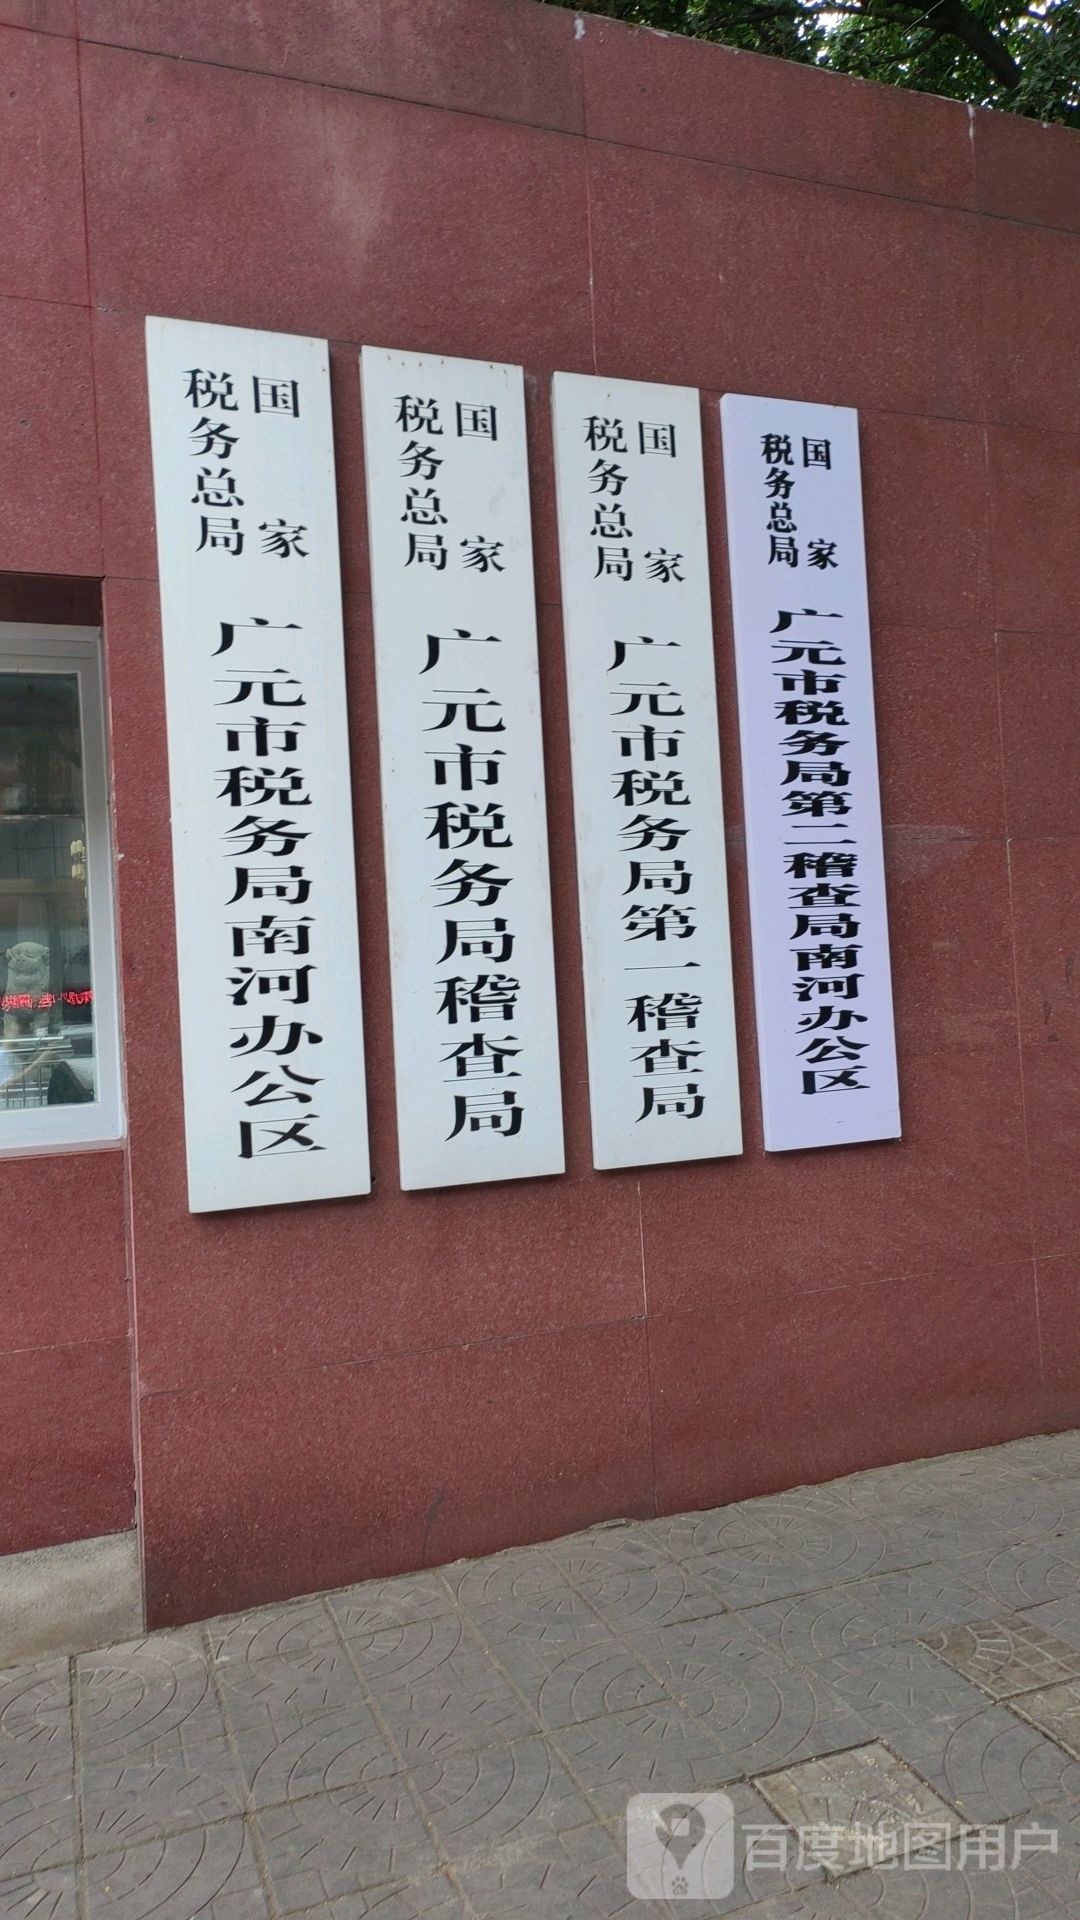 国家税务总局
广元市税务局南河办公区
国家税务总局
广元市税务局稽查局
国家税务总局
广元市税务局第一稽查局
国家税务总局
广元市税务局第二稽查局南河办公区
百度地图用户